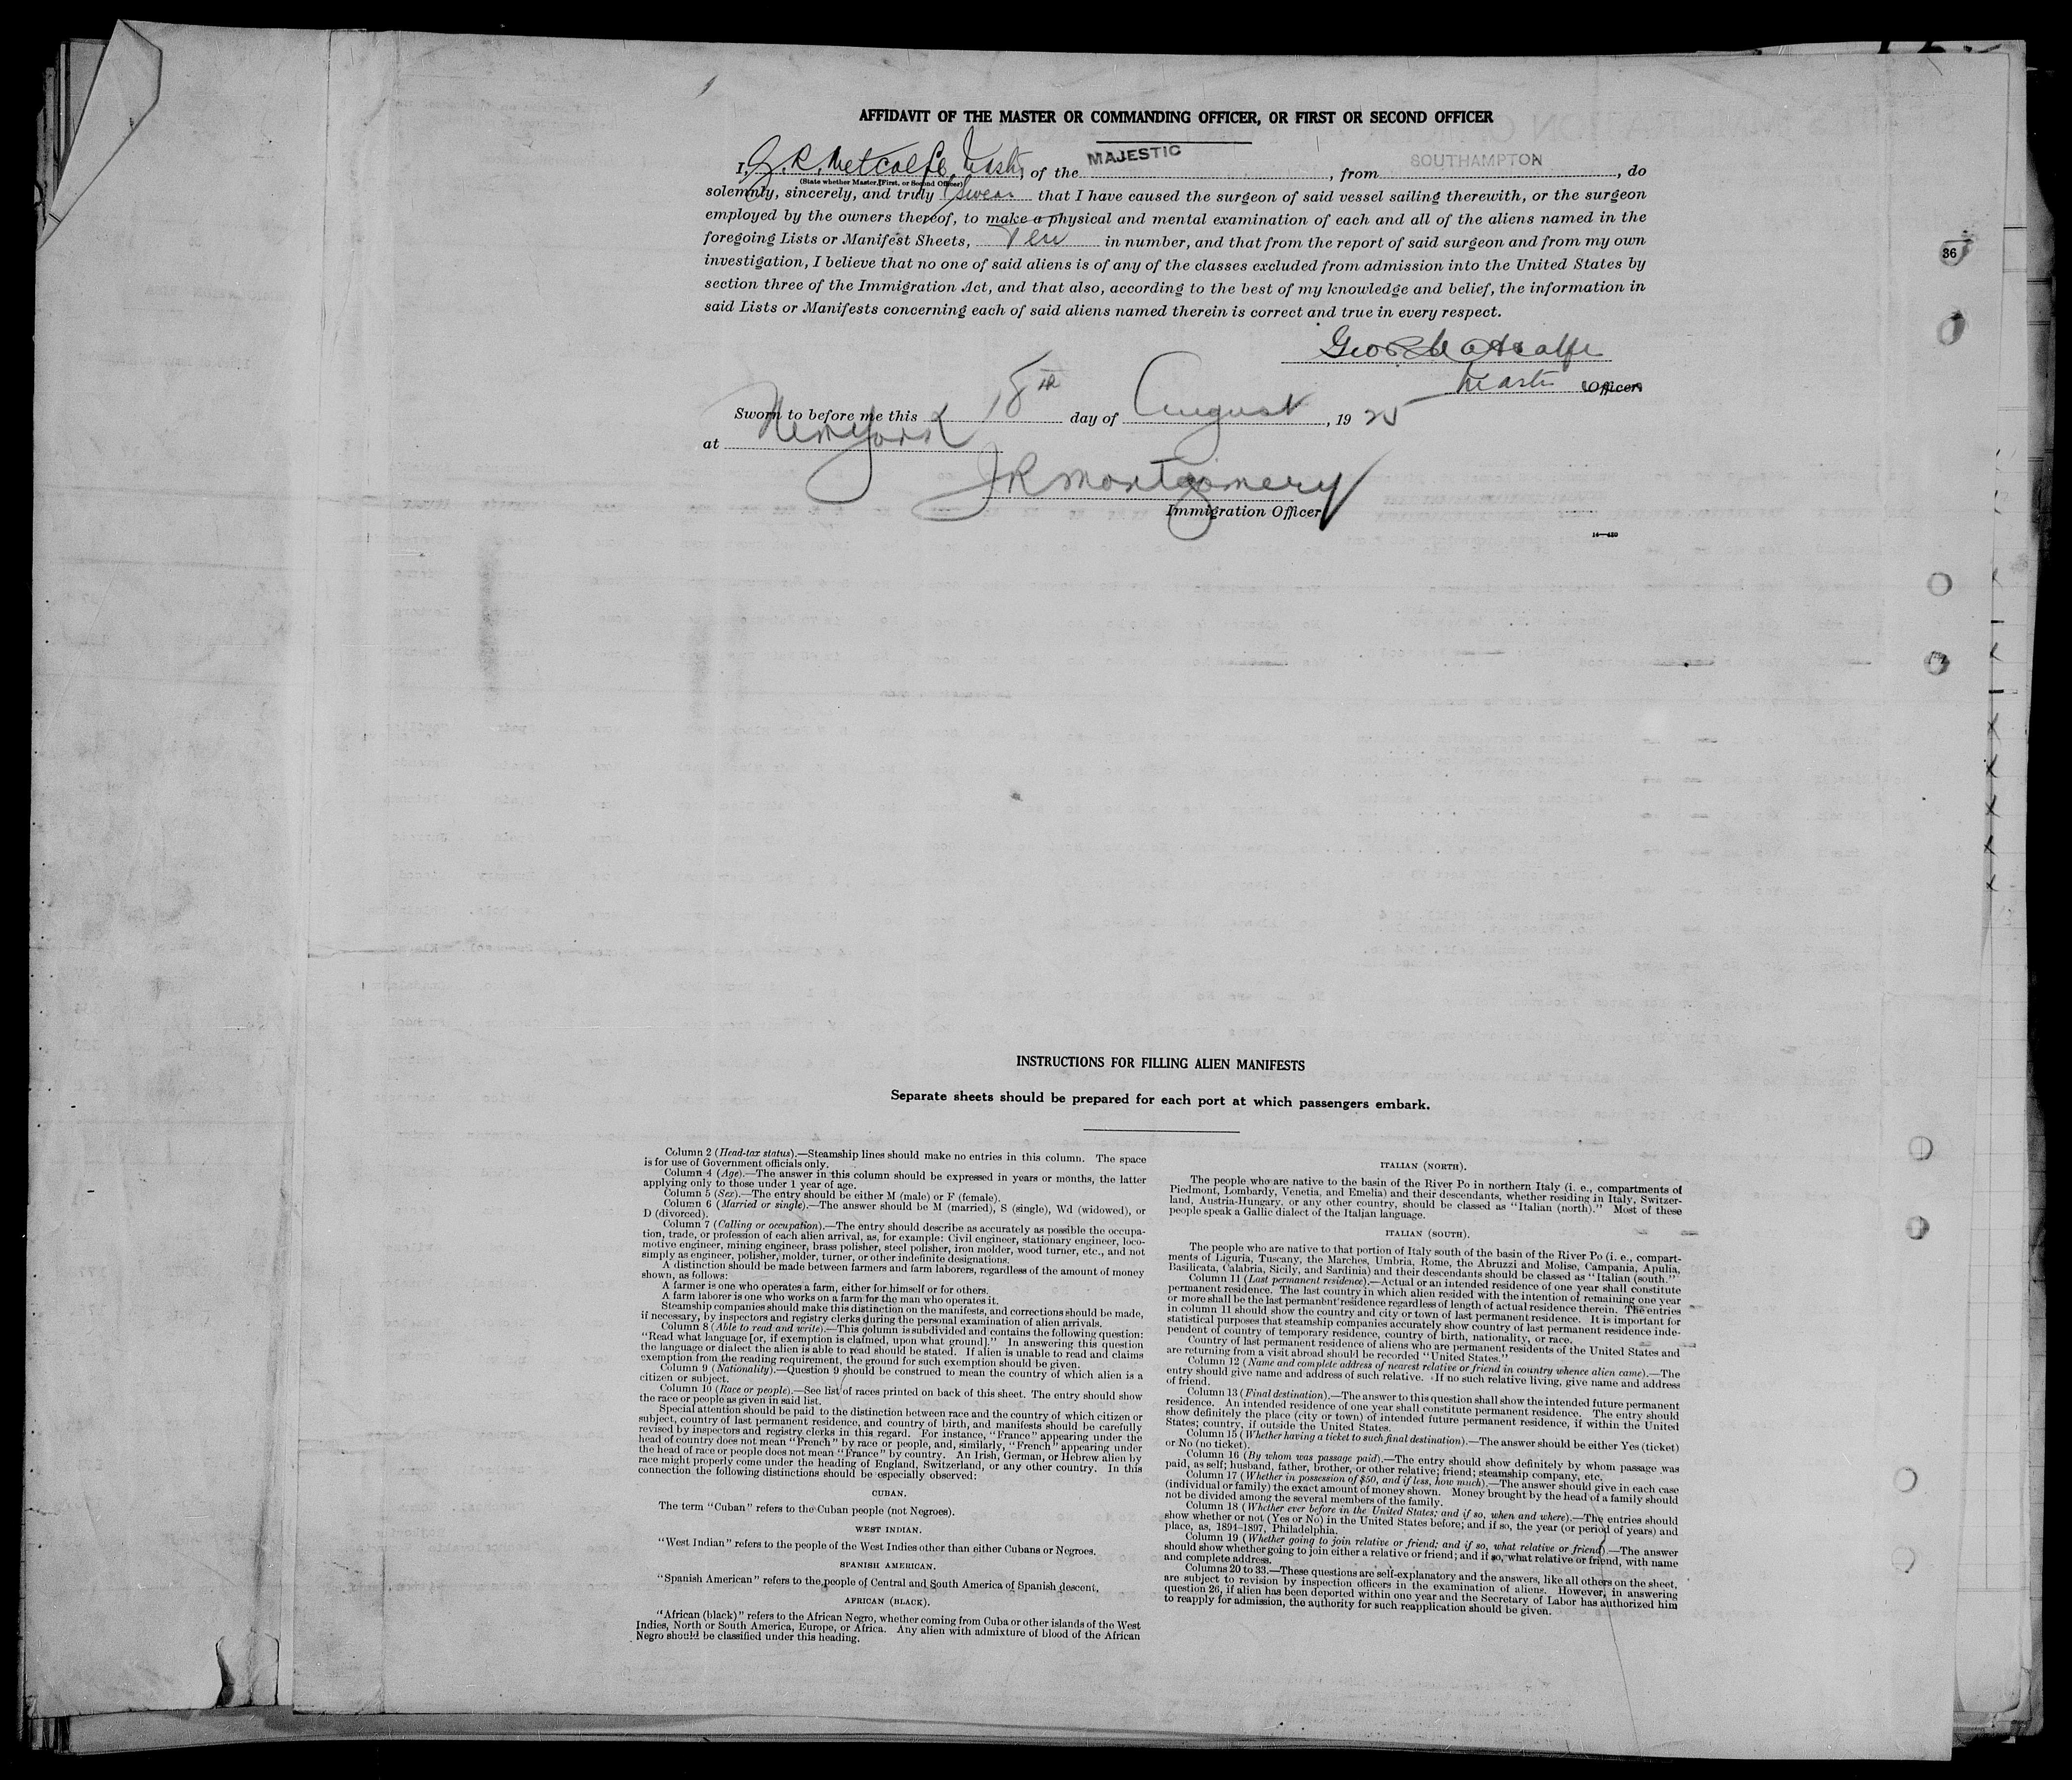 AFFIDAVIT OF THE MASTER OR COMMANDING OFFICER, OR FIRST OR SECOND OFFICER
I, G. R. Metcalfe, Master, of the MAJESTIC, from SOUTHAMPTON, do
(State whether Master, First, or Second Officer)
solemnly, sincerely, and truly swear that I have caused the surgeon of said vessel sailing therewith, or the surgeon
employed by the owners thereof, to make a physical and mental examination of each and all of the aliens named in the
foregoing Lists or Manifest Sheets, Ten in number, and that from the report of said surgeon and from my own
investigation, I believe that no one of said aliens is of any of the classes excluded from admission into the United States by
section three of the Immigration Act, and that also, according to the best of my knowledge and belief, the information in
said Lists or Manifests concerning each of said aliens named therein is correct and true in every respect.
Geo R Metcalfe
Master Officer.
Sworn to before me this 18th day of August, 1925
at New York
J R Montgomery
Immigration Officer.
14—430
36
INSTRUCTIONS FOR FILLING ALIEN MANIFESTS
Separate sheets should be prepared for each port at which passengers embark.
Column 2 (Head-tax status).—Steamship lines should make no entries in this column. The space
is for use of Government officials only.
Column 4 (Age).—The answer in this column should be expressed in years or months, the latter
applying only to those under 1 year of age.
Column 5 (Sex).—The entry should be either M (male) or F (female).
Column 6 (Married or single).—The answer should be M (married), S (single), Wd (widowed), or
D (divorced).
Column 7 (Calling or occupation).—The entry should describe as accurately as possible the occupa-
tion, trade, or profession of each alien arrival, as, for example: Civil engineer, stationary engineer, loco-
motive engineer, mining engineer, brass polisher, steel polisher, iron molder, wood turner, etc., and not
simply as engineer, polisher, molder, turner, or other indefinite designations.
A distinction should be made between farmers and farm laborers, regardless of the amount of money
shown, as follows:
A farmer is one who operates a farm, either for himself or for others.
A farm laborer is one who works on a farm for the man who operates it.
Steamship companies should make this distinction on the manifests, and corrections should be made,
if necessary, by inspectors and registry clerks during the personal examination of alien arrivals.
Column 8 (Able to read and write).—This column is subdivided and contains the following question:
"Read what language [or, if exemption is claimed, upon what ground]." In answering this question
the language or dialect the alien is able to read should be stated. If alien is unable to read and claims
exemption from the reading requirement, the ground for such exemption should be given.
Column 9 (Nationality).—Question 9 should be construed to mean the country of which alien is a
citizen or subject.
Column 10 (Race or people).—See list of races printed on back of this sheet. The entry should show
the race or people as given in said list.
Special attention should be paid to the distinction between race and the country of which citizen or
subject, country of last permanent residence, and country of birth, and manifests should be carefully
revised by inspectors and registry clerks in this regard. For instance, "France" appearing under the
head of country does not mean "French" by race or people, and, similarly, "French" appearing under
the head of race or people does not mean "France" by country. An Irish, German, or Hebrew alien by
race might properly come under the heading of England, Switzerland, or any other country. In this
connection the following distinctions should be especially observed:
CUBAN.
The term "Cuban" refers to the Cuban people (not Negroes).
WEST INDIAN.
"West Indian" refers to the people of the West Indies other than either Cubans or Negroes.
SPANISH AMERICAN.
"Spanish American" refers to the people of Central and South America of Spanish descent.
AFRICAN (BLACK).
"African (black)" refers to the African Negro, whether coming from Cuba or other islands of the West
Indies, North or South America, Europe, or Africa. Any alien with admixture of blood of the African
Negro should be classified under this heading.
ITALIAN (NORTH).
The people who are native to the basin of the River Po in northern Italy (i. e., compartments of
Piedmont, Lombardy, Venetia, and Emelia) and their descendants, whether residing in Italy, Switzer-
land, Austria-Hungary, or any other country, should be classed as "Italian (north)." Most of these
people speak a Gallic dialect of the Italian language.
ITALIAN (SOUTH).
The people who are native to that portion of Italy south of the basin of the River Po (i. e., compart-
ments of Liguria, Tuscany, the Marches, Umbria, Rome, the Abruzzi and Molise, Campania, Apulia,
Basilicata, Calabria, Sicily, and Sardinia) and their descendants should be classed as "Italian (south."
Column 11 (Last permanent residence).—Actual or an intended residence of one year shall constitute
permanent residence. The last country in which alien resided with the intention of remaining one year
or more shall be the last permanent residence regardless of length of actual residence therein. The entries
in column 11 should show the country and city or town of last permanent residence. It is important for
statistical purposes that steamship companies accurately show country of last permanent residence inde-
pendent of country of temporary residence, country of birth, nationality, or race.
Country of last permanent residence of aliens who are permanent residents of the United States and
are returning from a visit abroad should be recorded "United States."
Column 12 (Name and complete address of nearest relative or friend in country whence alien came).—The
entry should give name and address of such relative. If no such relative living, give name and address
of friend.
Column 13 (Final destination).—The answer to this question shall show the intended future permanent
residence. An intended residence of one year shall constitute permanent residence. The entry should
show definitely the place (city or town) of intended future permanent residence, if within the United
States; country, if outside the United States.
Column 15 (Whether having a ticket to such final destination).—The answer should be either Yes (ticket)
or No (no ticket).
Column 16 (By whom was passage paid).—The entry should show definitely by whom passage was
paid, as self; husband, father, brother, or other relative; friend; steamship company, etc.
Column 17 (Whether in possession of $50, and if less, how much).—The answer should give in each case
(individual or family) the exact amount of money shown. Money brought by the head of a family should
not be divided among the several members of the family.
Column 18 (Whether ever before in the United States; and if so, when and where).—The entries should
show whether or not (Yes or No) in the United States before; and if so, the year (or period of years) and
place, as, 1894-1897, Philadelphia.
Column 19 (Whether going to join relative or friend; and if so, what relative or friend).—The answer
should show whether going to join either a relative or friend; and if so, what relative or friend, with name
and complete address.
Columns 20 to 33.—These questions are self-explanatory and the answers, like all others on the sheet,
are subject to revision by inspection officers in the examination of aliens. However, in answering
question 26, if alien has been deported within one year and the Secretary of Labor has authorized him
to reapply for admission, the authority for such reapplication should be given.